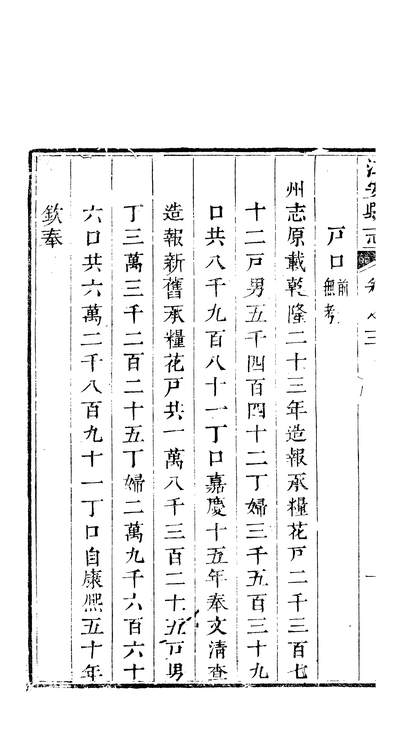 江安縣志 卷之三 一
戶口前無考
州志原載乾隆二十三年造報承糧花戶二千三百七
十二戶男五千四百四十二丁婦三千五百三十九
口共八千九百八十一丁口嘉慶十五年奉文清查
造報新舊承糧花戶共一萬八千三百二十五戶男
丁三萬三千二百二十五丁婦二萬九千六百六十
六口共六萬二千八百九十一丁口自康熙五十年
欽奉